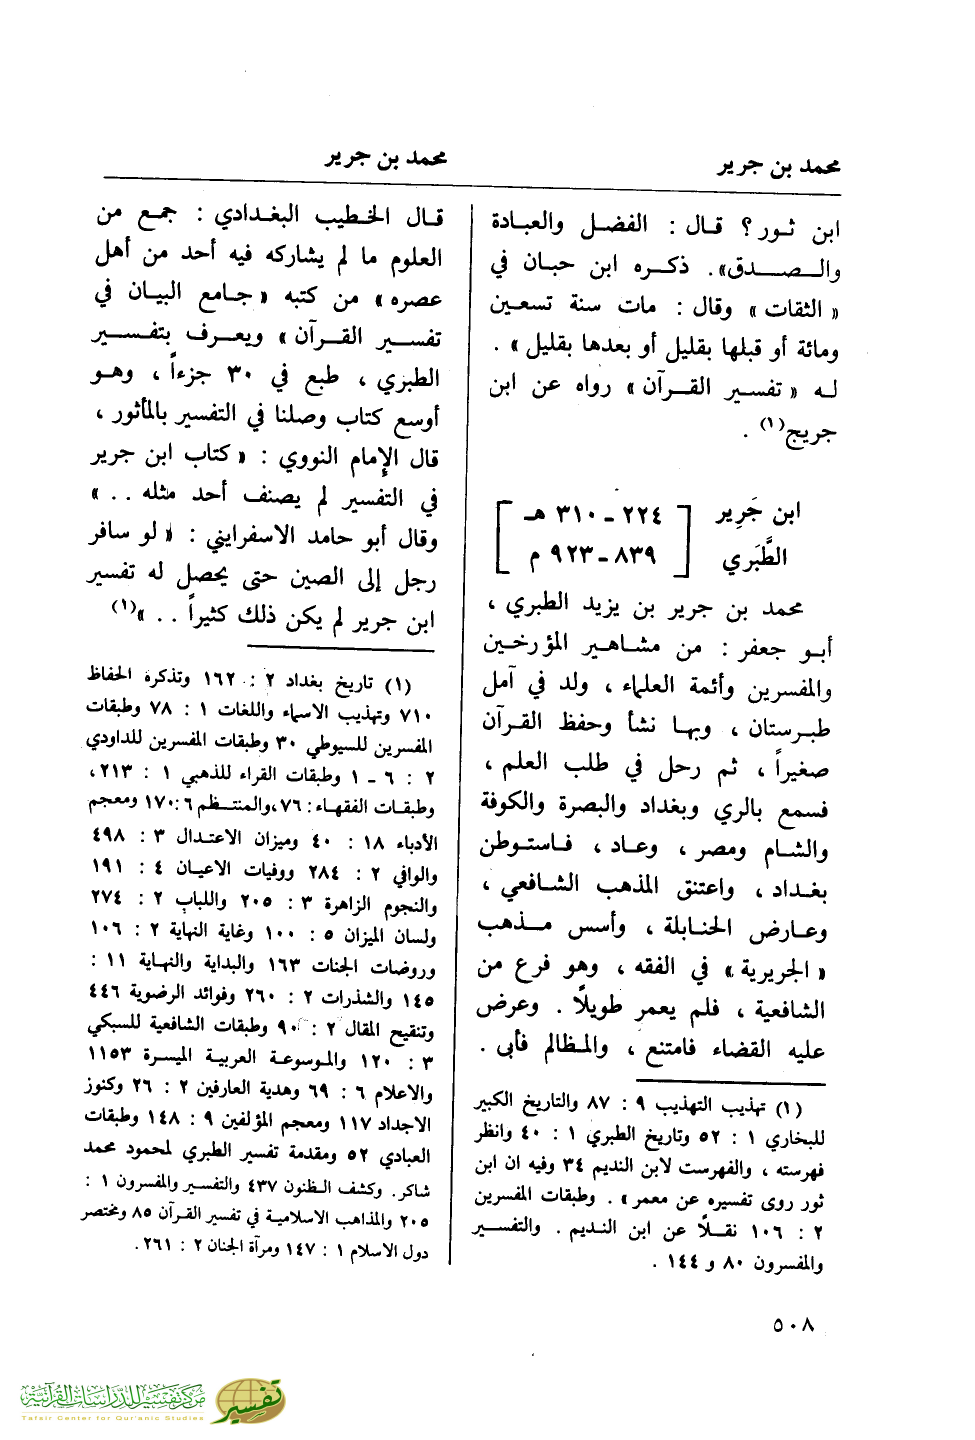 محمد بن جرير
محمد بن جرير
ابن ثور؟ قال : الفضل والعبادة
والصدق». ذكره ابن حبان في
« الثقات » وقال : مات سنة تسعين
ومائة أو قبلها بقليل أو بعدها بقليل » .
له « تفسير القرآن » رواه عن ابن
جريج(١) .
ابن جَرِير [ ٢٢٤ - ٣١٠ هـ
الطَّبَري ٨٣٩ - ٩٢٣ م ]
محمد بن جرير بن يزيد الطبري ،
أبو جعفر : من مشاهير المؤرخين
والمفسرين وأئمة العلماء ، ولد في آمل
طبرستان ، وبها نشأ وحفظ القرآن
صغيراً ، ثم رحل في طلب العلم ،
فسمع بالري وبغداد والبصرة والكوفة
والشام ومصر ، وعاد ، فاستوطن
بغداد ، واعتنق المذهب الشافعي ،
وعارض الحنابلة ، وأسس مذهب
« الجريرية » في الفقه ، وهو فرع من
الشافعية ، فلم يعمر طويلاً . وعرض
عليه القضاء فامتنع ، والمظالم فأبى .
(١) تهذيب التهذيب ٩ : ٨٧ والتاريخ الكبير
للبخاري ١ : ٥٢ وتاريخ الطبري ١ : ٤٠ وانظر
فهرسته ، والفهرست لابن النديم ٣٤ وفيه ان ابن
ثور روى تفسيره عن معمر» . وطبقات المفسرين
٢ : ١٠٦ نقلاً عن ابن النديم . والتفسير
والمفسرون ٨٠ و ١٤٤ .
قال الخطيب البغدادي : جمع من
العلوم ما لم يشاركه فيه أحد من أهل
عصره » من كتبه « جامع البيان في
تفسير القرآن » ويعرف بتفسير
الطبري ، طبع في ٣٠ جزءاً ، وهو
أوسع كتاب وصلنا في التفسير بالمأثور ،
قال الإمام النووي : « كتاب ابن جرير
في التفسير لم يصنف أحد مثله . . »
وقال أبو حامد الاسفرايني : « لو سافر
رجل إلى الصين حتى يحصل له تفسير
ابن جرير لم يكن ذلك كثيراً . . »(١)
(١) تاريخ بغداد ٢ : ١٦٢ وتذكرة الحفاظ
٧١٠ وتهذيب الاسماء واللغات ١ : ٧٨ وطبقات
المفسرين للسيوطي ٣٠ وطبقات المفسرين للداودي
٢ : ٦ - ١ وطبقات القراء للذهبي ١ : ٢١٣ ،
وطبقات الفقهاء : ٧٦ ،والمنتظم ٦ :١٧٠ ومعجم
الأدباء ١٨ : ٤٠ وميزان الاعتدال ٣ : ٤٩٨
والوافي ٢ : ٢٨٤ ووفيات الاعيان ٤ : ١٩١
والنجوم الزاهرة ٣ : ٢٠٥ واللباب ٢ : ٢٧٤
ولسان الميزان ٥ : ١٠٠ وغاية النهاية ٢ : ١٠٦
وروضات الجنات ١٦٣ والبداية والنهاية ١١ :
١٤٥ والشذرات ٢ : ٢٦٠ وفوائد الرضوية ٤٤٦
وتنقيح المقال ٢ : ٩٠ وطبقات الشافعية للسبكي
٣ : ١٢٠ والموسوعة العربية الميسرة ١١٥٣
والاعلام ٦ : ٦٩ وهدية العارفين ٢ : ٢٦ وكنوز
الاجداد ١١٧ ومعجم المؤلفين ٩ : ١٤٨ وطبقات
العبادي ٥٢ ومقدمة تفسير الطبري لمحمود محمد
شاكر . وكشف الظنون ٤٣٧ والتفسير والمفسرون ١ :
٢٠٥ والمذاهب الاسلامية في تفسير القرآن ٨٥ ومختصر
دول الاسلام ١ : ١٤٧ ومرآة الجنان ٢ : ٢٦١ .
٥٠٨
مركز تفسير للدراسات القرآنية
Tafsir Center for Qur'anic Studies
تفسير